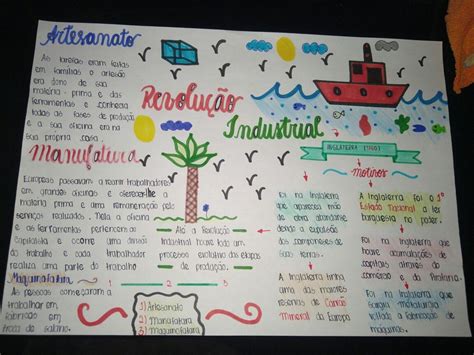 Artesanato
As tarefas eram feitas
em famílias o artesão
era dono de sua
matéria-prima e das
ferramentas e conhecia
todas as fases de produção
e a sua oficina era na
sua própria casa.
Revolução
Industrial
Manufatura
Europeus passavam a reunir trabalhadores
em grandes oficinas e oferecer-lhe a
matéria prima e uma remuneração pelo
serviços realizados. Nela a oficina
e as ferramentas pertencem ao
Capitalista e ocorre uma divisão
do trabalho e cada trabalhador
realiza uma parte do trabalho
Maquinofatura
As pessoas começaram a
trabalhar em
fabricado em
troca de salário.
Até a Revolução
Industrial houve todo um
processo evolutivo das etapas
de produção.
1 2 3
1) Artesanato
2) Manufatura
3) Maquinofatura
INGLATERRA
motivos
Foi na Inglaterra
que apareceu mão
de obra abundante
devido a expulsão
dos camponeses de
suas terras.
A Inglaterra tinha
uma das maiores
reservas de Carvão
Mineral da Europa
A Inglaterra foi o 1º
Estado Nacional a ter
burguesia no poder.
Foi na Inglaterra
que houve acumulações de
capitais através do
comércio e da Pirataria.
Foi na Inglaterra que
surgiu metalurgia
voltada a fabricação de
máquinas.